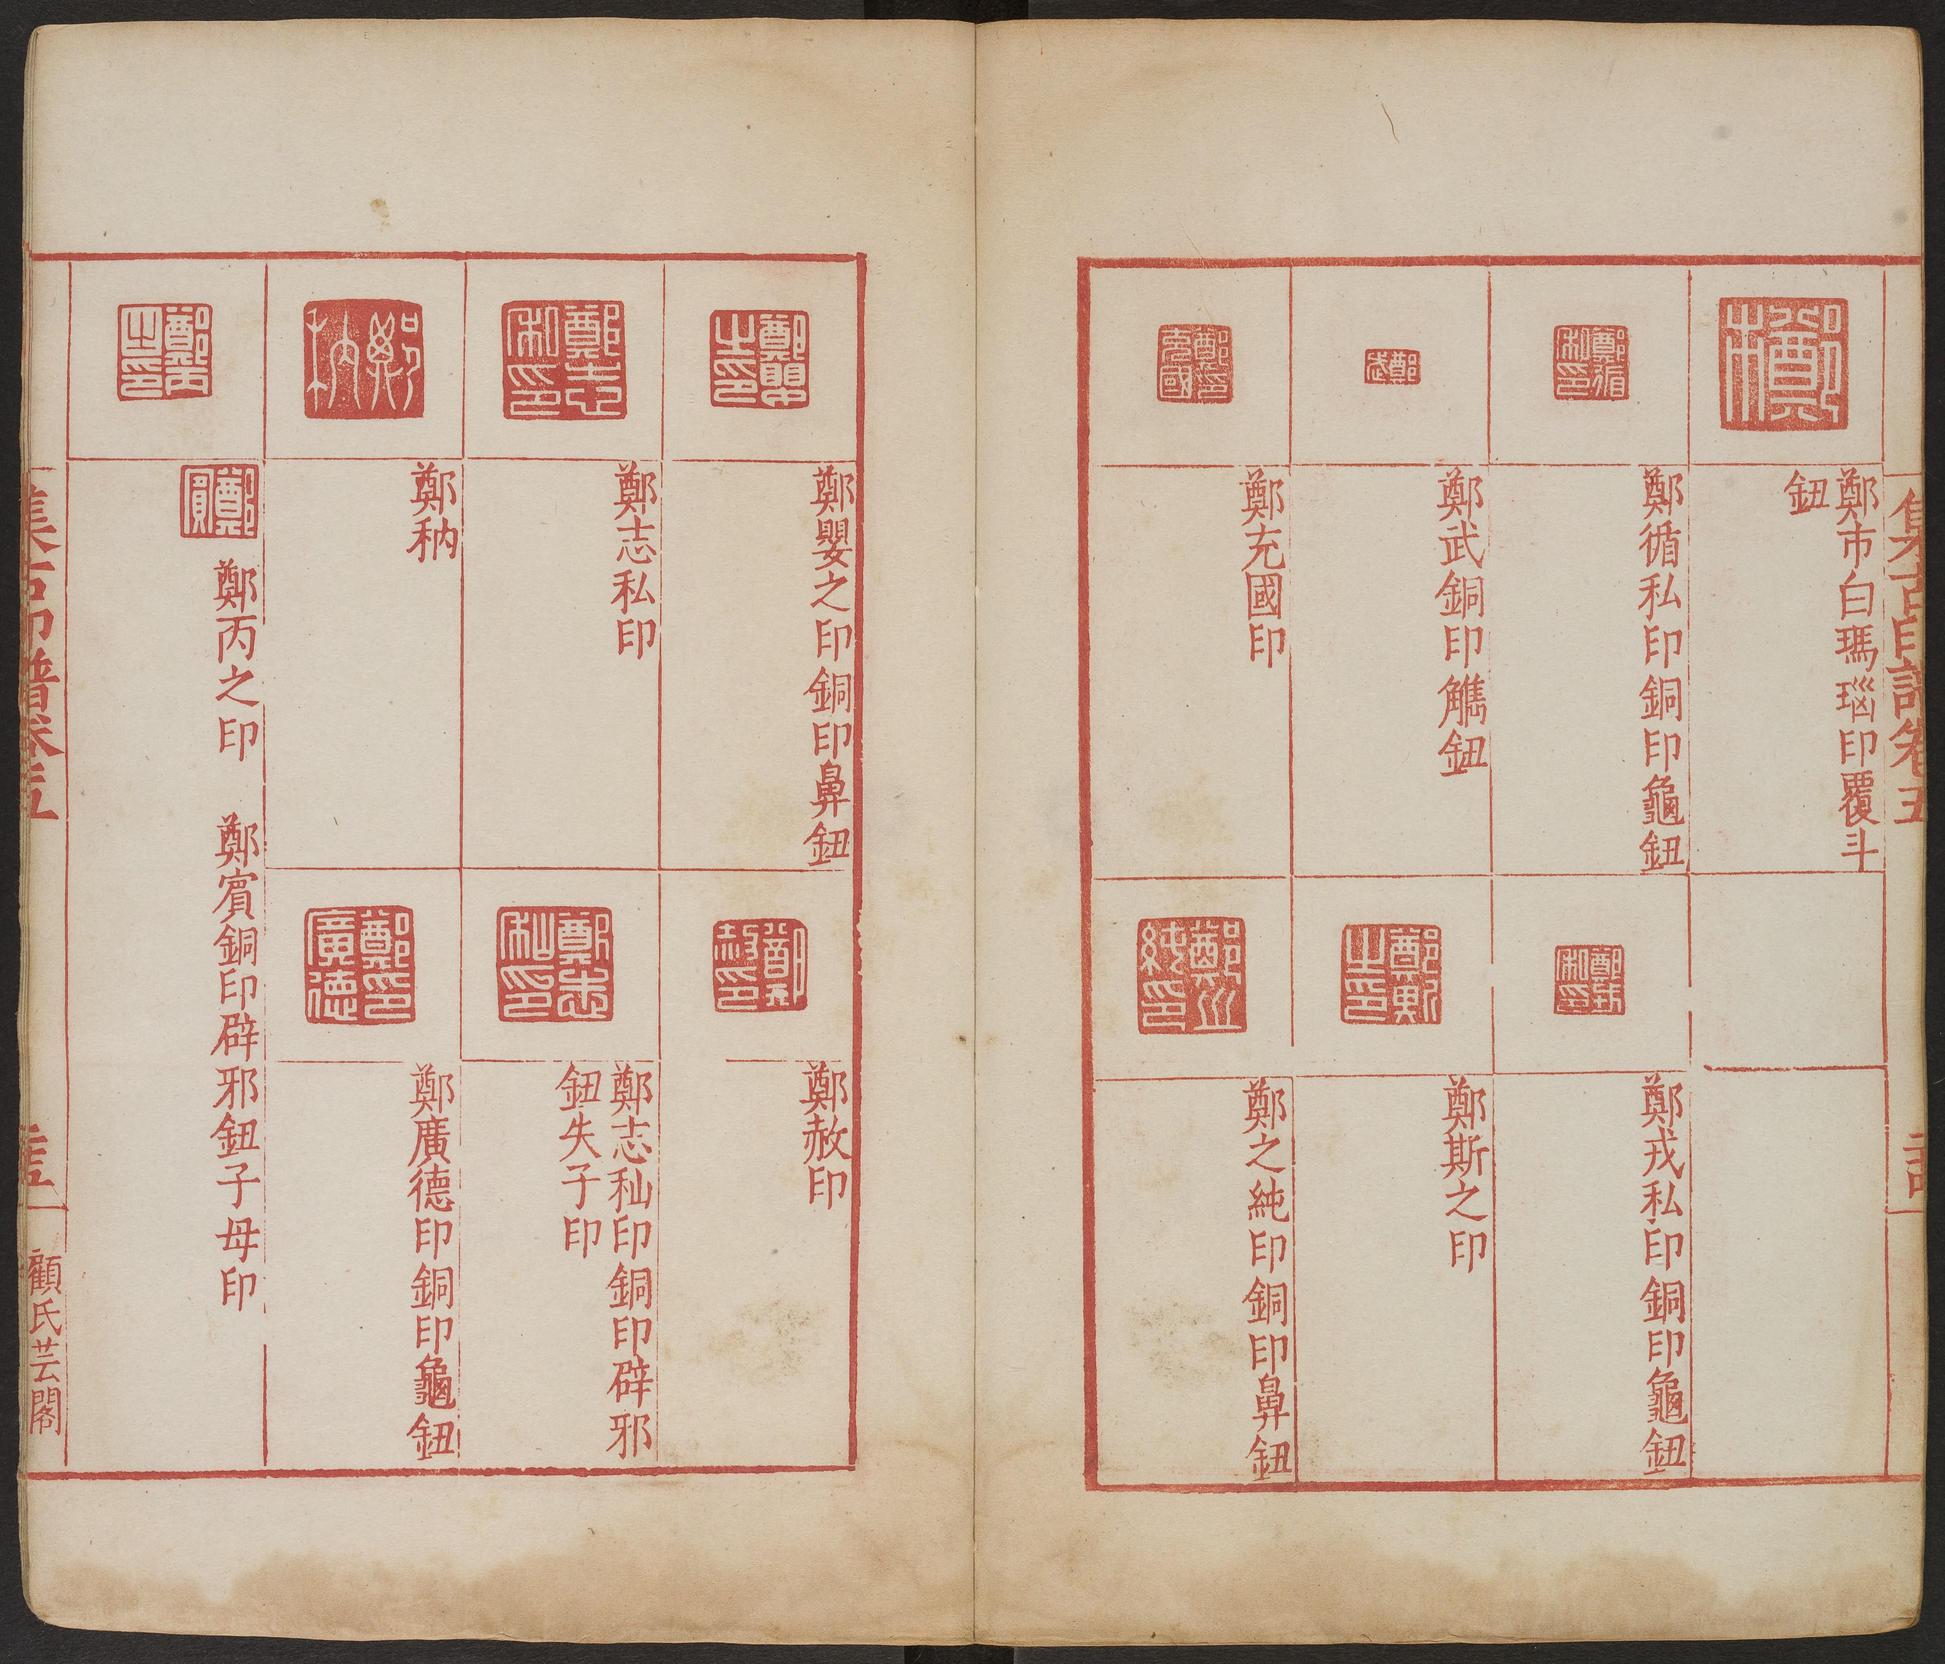 集古印譜卷五
鄭市白瑪瑙印覆斗
鈕
鄭循私印銅印龜鈕
鄭戎私印銅印龜鈕
鄭武銅印觿鈕
鄭斯之印
鄭充國印
鄭之純印銅印鼻鈕
鄭嬰之印銅印鼻鈕
鄭赦印
鄭志私印
鄭志私印銅印辟邪
鈕失子印
鄭秾
鄭廣德印銅印龜鈕
鄭丙之印 鄭賓銅印辟邪鈕子母印
集古印譜卷五
顧氏芸閣